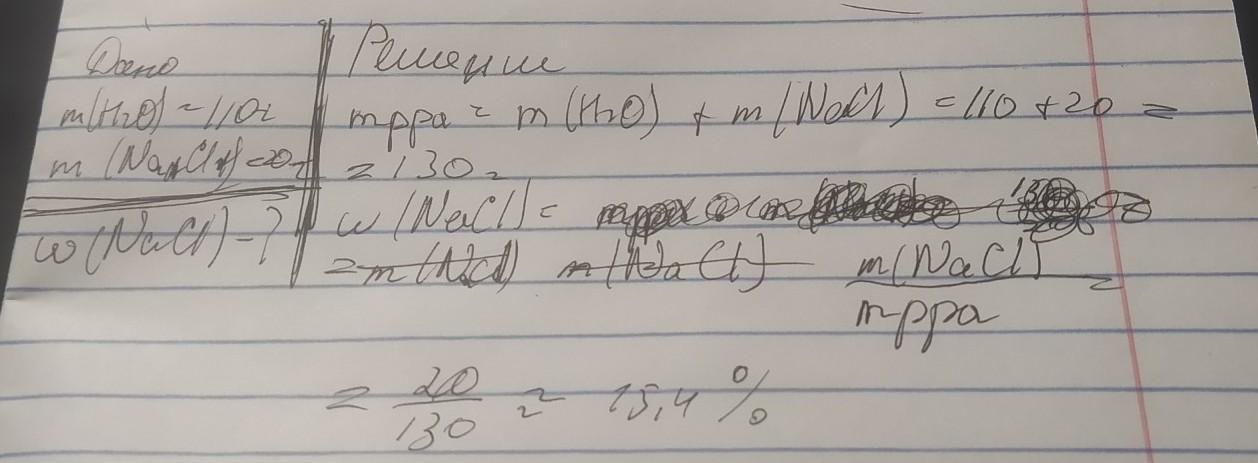 Дано
m(H2O) = 110г
m (NaCl) = 20г
w(NaCl) - ?
Решение
mрра = m(H2O) + m(NaCl) = 110 + 20 =
= 130г
w(NaCl) =
= m(NaCl) m(NaCl) m(NaCl) =
mрра
= 20
130 ≈ 15,4 %